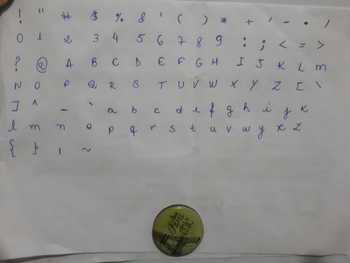 ! " # $ % & ' ( ) * + , - . /
0 1 2 3 4 5 6 7 8 9 : ; < = >
? @ A B C D E F G H I J K L M
N O P Q R S T U V W X Y Z [ \
] ^ _ ` a b c d e f g h i j k
l m n o p q r s t u v w y x z
{ } | ~